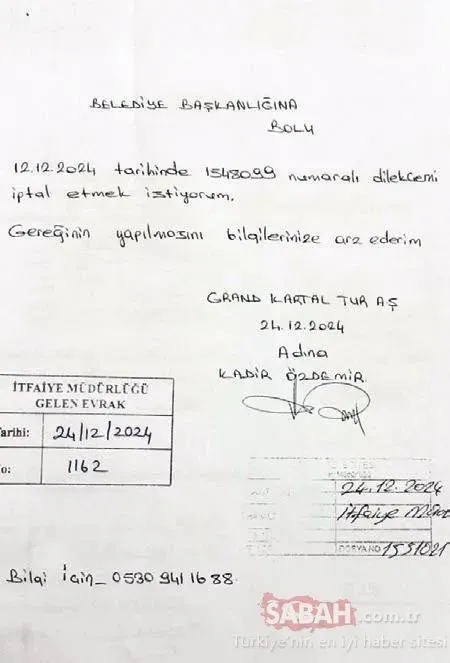 BELEDİYE BAŞKANLIĞINA
BOLU
12.12.2024 tarihinde 1548099 numaralı dilekcemi
iptal etmek istiyorum.
Gereğinin yapılmasını bilgilerinize arz ederim
GRAND KARTAL TUR AŞ
24.12.2024
Adına
KADİR ÖZDEMİR
İTFAİYE MÜDÜRLÜĞÜ
GELEN EVRAK
arihi: 24/12/2024
o: 1162
24.12.2024
itfaiye
DOSYA NO 1551021
Bilgi için_ 0530 941 16 88
SABAH.com.tr
Türkiye'nin en iyi haber sitesi